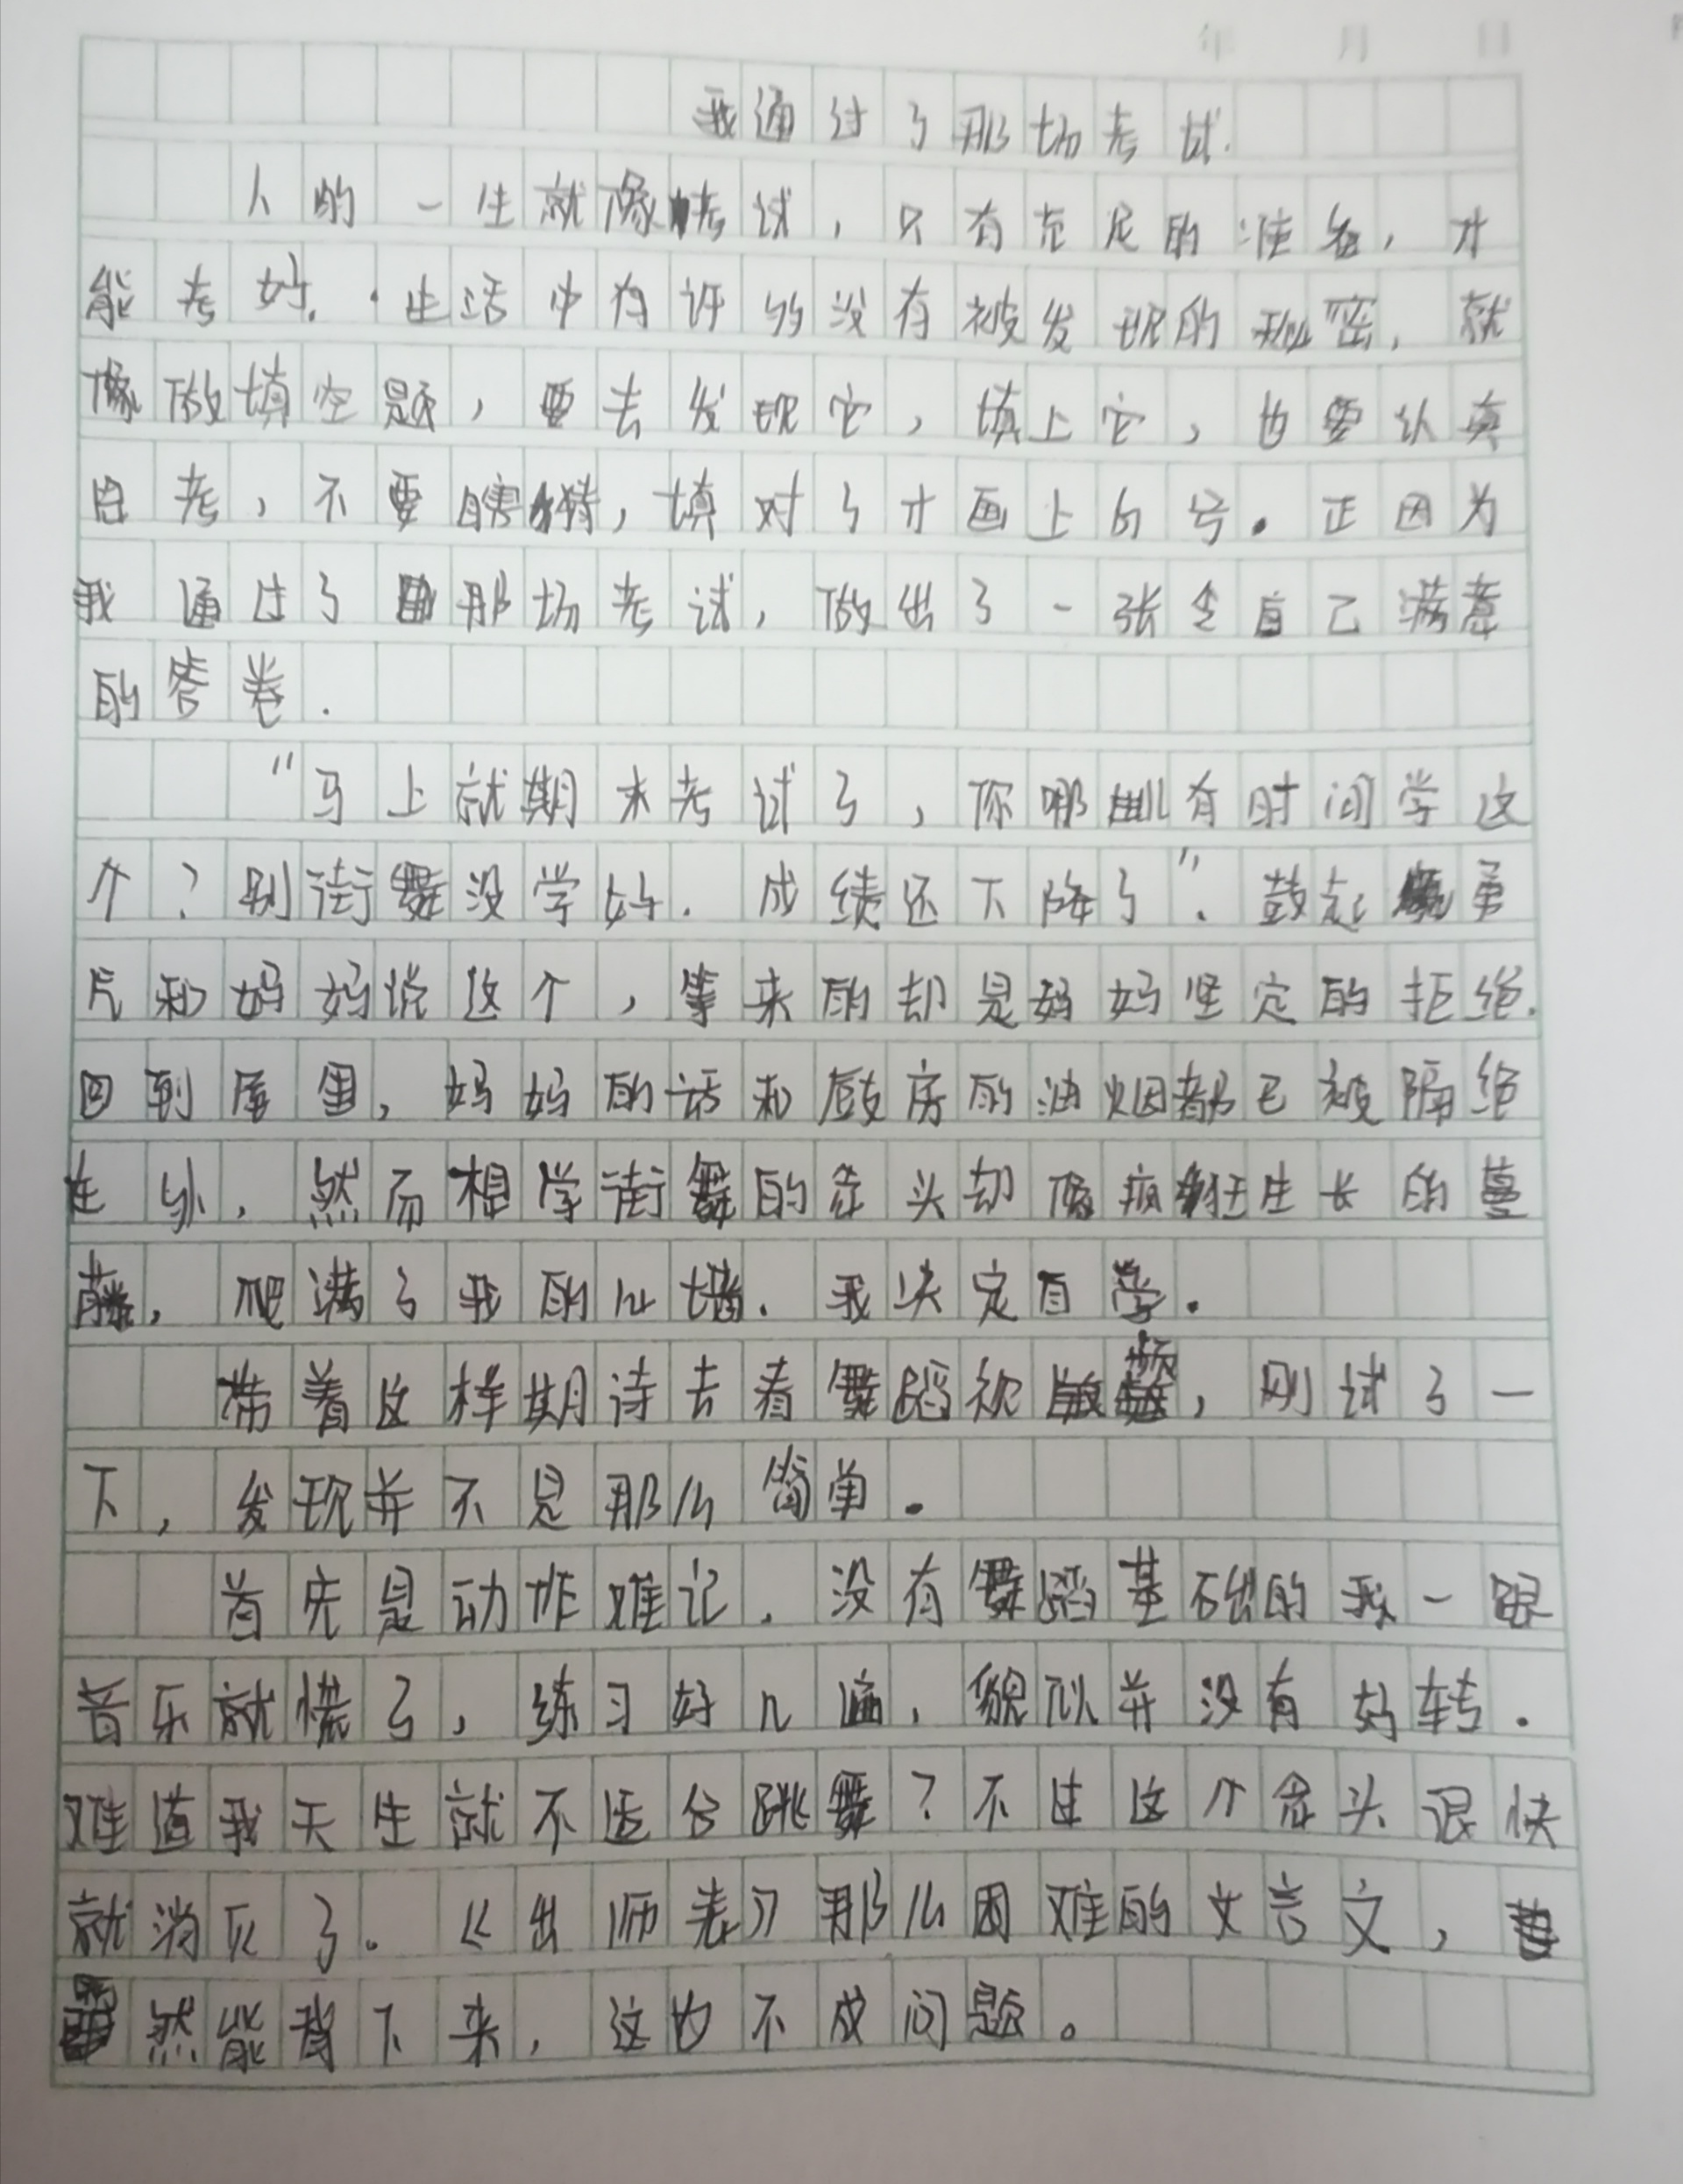 年 月 日
我通过了那场考试.
人的一生就像考试，只有充足的准备，才
能考好.生活中有许多没有被发现的秘密，就
像做填空题，要去发现它，填上它，也要认真
思考，不要瞎猜，填对了才画上句号。正因为
我通过了那场考试，做出了一张令自己满意
的答卷.
“马上就期末考试了，你哪儿有时间学这
个？别街舞没学好.成绩还下降了”.鼓起勇
气和妈妈说这个，等来的却是妈妈坚定的拒绝.
回到屋里，妈妈的话和厨房的油烟都已被隔绝
在外，然而想学街舞的念头却像疯狂生长的蔓
藤，爬满了我的心墙.我决定自学.
带着这样期待去看舞蹈视频，刚试了一
下，发现并不是那么简单。
首先是动作难记.没有舞蹈基础的我一跟
音乐就慌了，练习好几遍，貌似并没有好转.
难道我天生就不适合跳舞？不过这个念头很快
就消灭了。《出师表》那么困难的文言文，
然能背下来，这也不成问题。